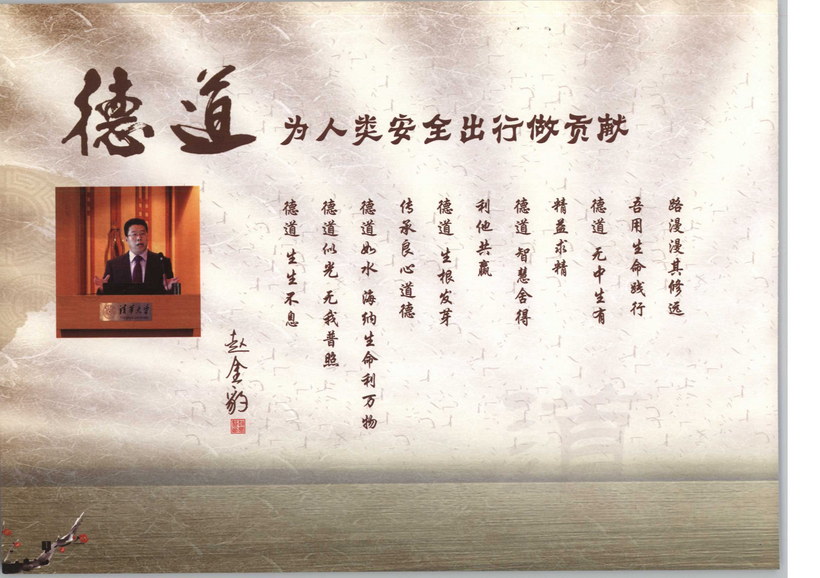 德道 为人类安全出行做贡献
路漫漫其修远
吾用生命践行
德道 无中生有
精益求精
德道 智慧舍得
利他共赢
德道 生根发芽
传承良心道德
德道如水 海纳生命利万物
德道似光 无我普照
德道 生生不息
赵金豹
清华大学
道